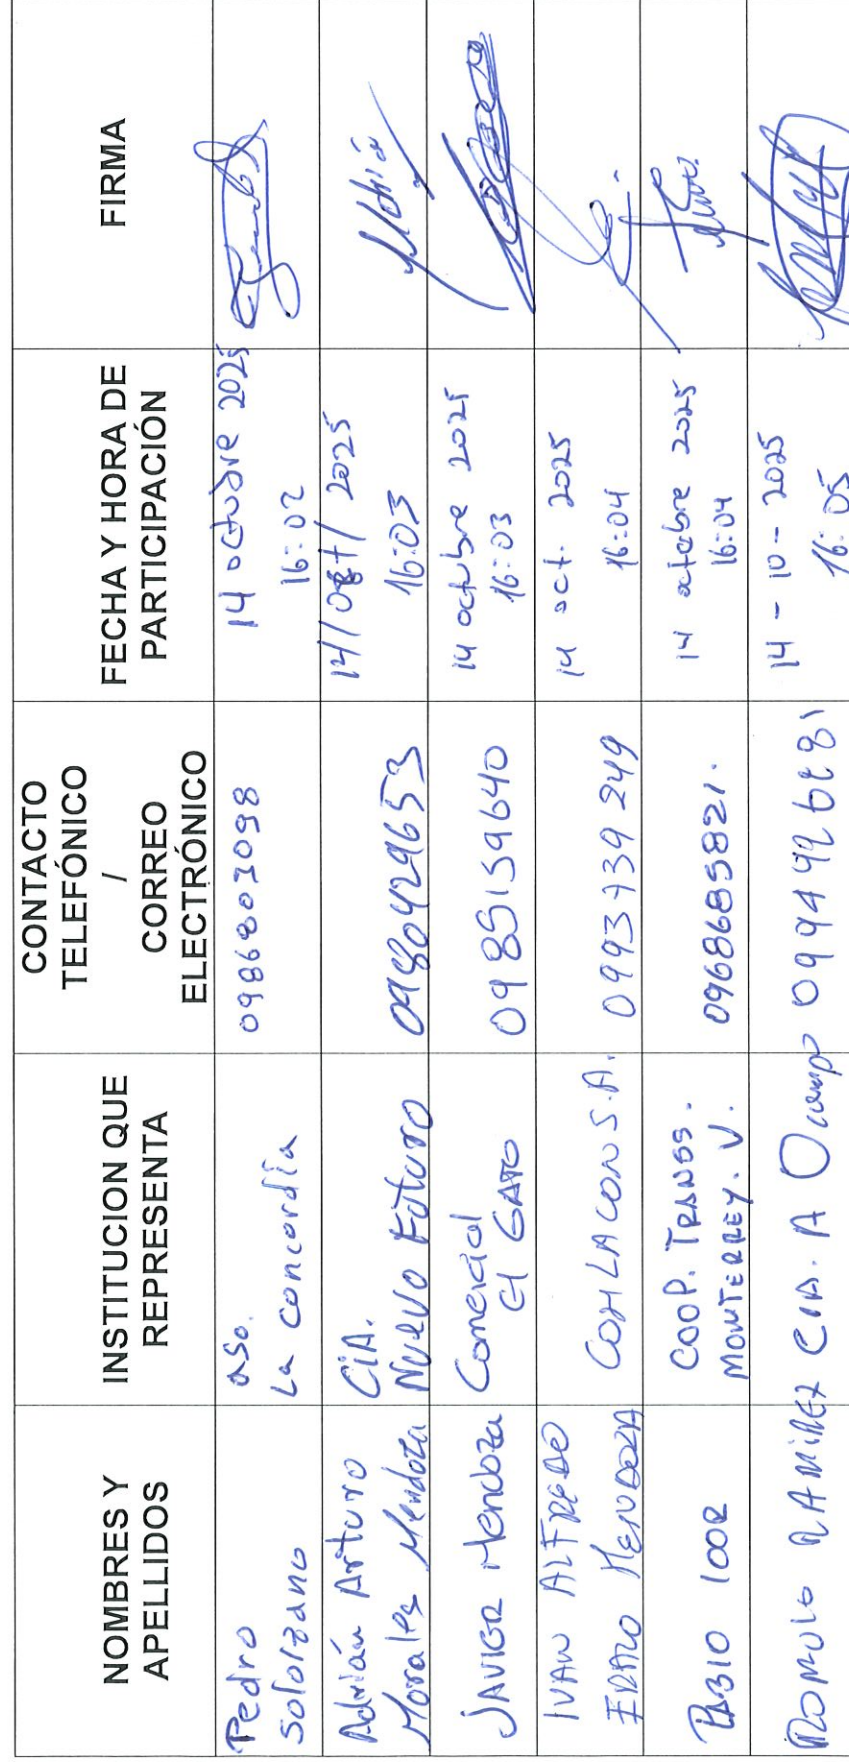 NOMBRES Y
APELLIDOS
INSTITUCION QUE
REPRESENTA
CONTACTO
TELEFÓNICO
/
CORREO
ELECTRÓNICO
FECHA Y HORA DE
PARTICIPACIÓN
FIRMA
Pedro
Solorzano
aso.
La concordía
14 octubre 2025
16:02
Adrián Arturo
Morales Mendoza
CiA.
Nuevo Futuro
0980429653
14/ /2025
16:03
Adrián
JAVIER Mendoza
Comercial
El GATO
0985159640
14 octubre 2025
16:03
IVAN ALFREDO
ERAZO MENDOZA
S.A.
0993739249
14 oct. 2025
16:04
PABlO
COOP. TRANSS.
MONTERREY. V.
0968685821.
14 octubre 2025
16:04
ROMULO RAMIREZ
CIA. A Ocampo
14-10-2025
16:05